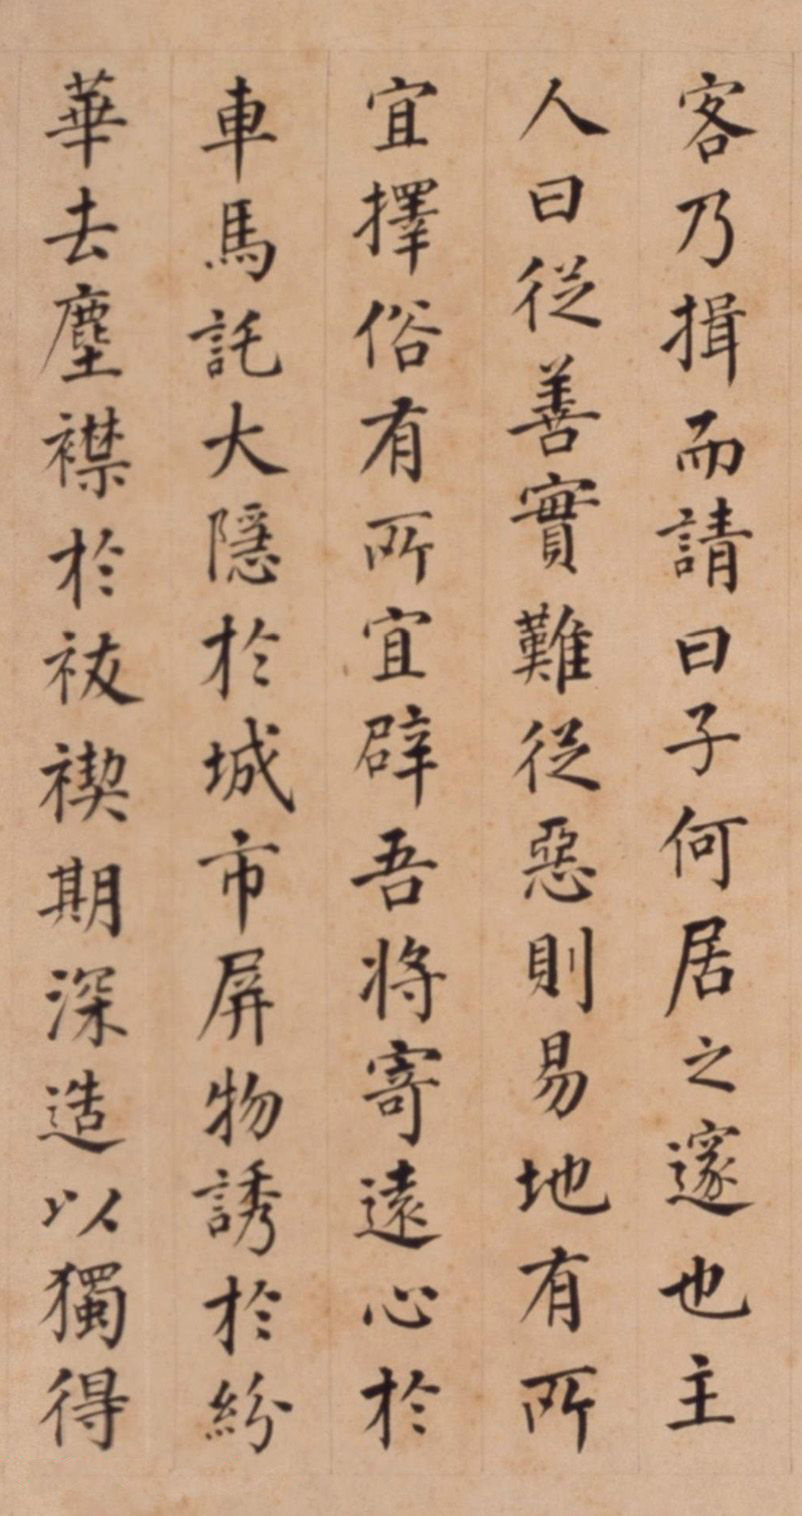 客乃揖而請曰子何居之邃也主
人曰從善實難從惡則易地有所
宜擇俗有所宜辟吾將寄遠心於
車馬託大隱於城市屏物誘於紛
華去塵襟於祓禊期深造以獨得